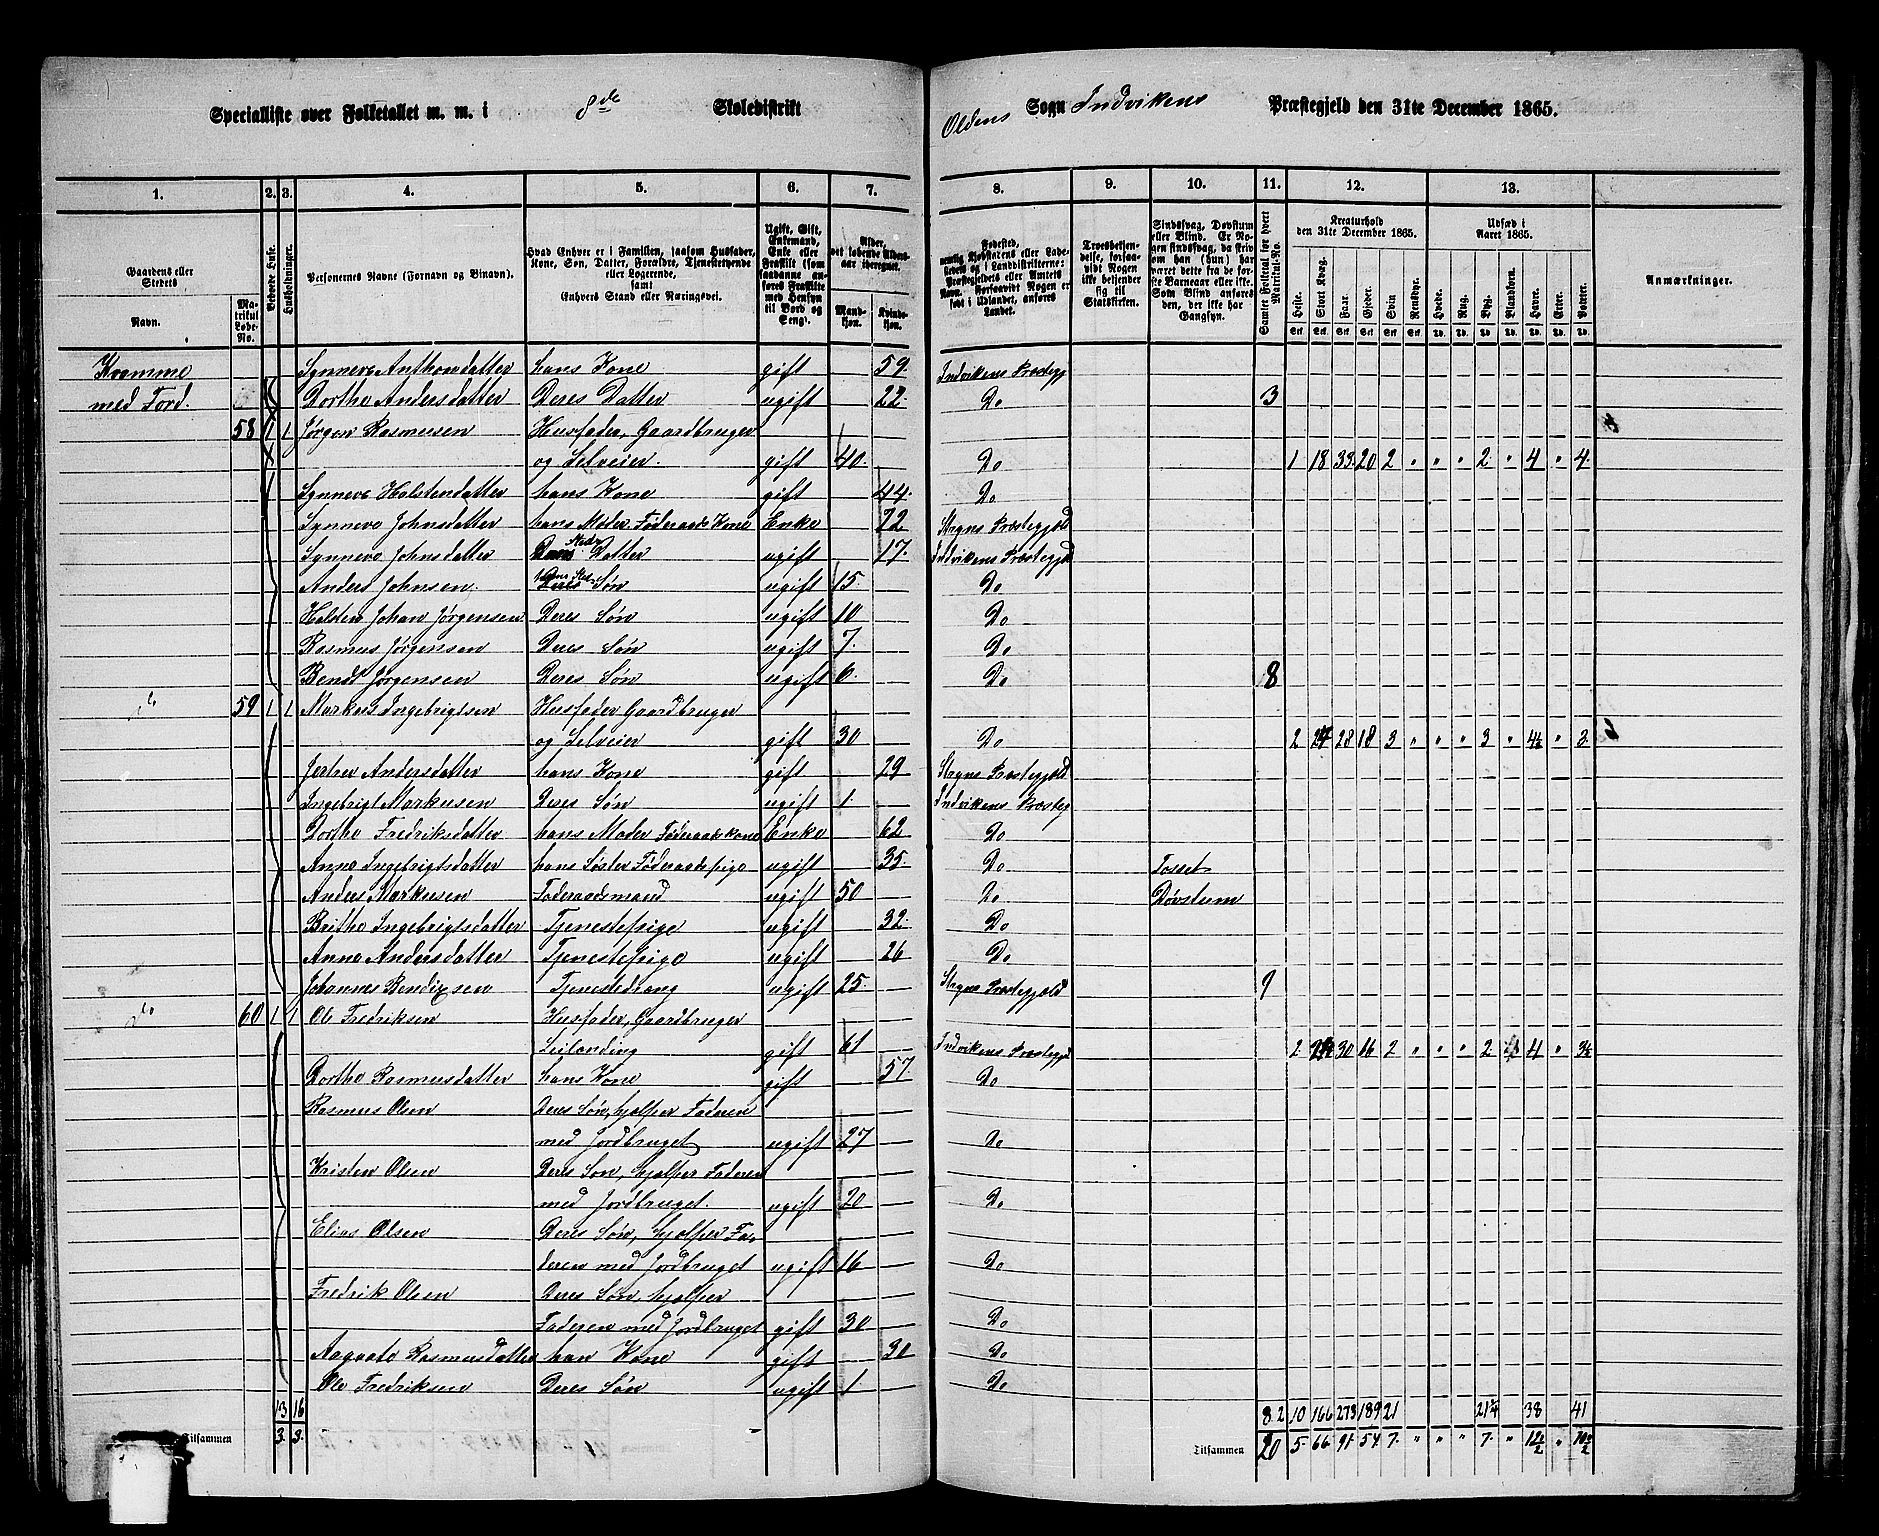 Specialliste over Folketallet m. m. i 8de Skoledistrikt Oldens Sogn Indvikens Præstegjeld den 31te December 1865.
1. 2. 3. 4. 5. 6. 7. 8. 9. 10. 11. 12. 13.
Gaardens eller Stedets
Navn.
Matrikul Løbe-No.
Beboede Huse.
Husholdninger.
Personernes Navne (Fornavn og Binavn).
Hvad Enhver er i Familien, saasom Husfader, Kone, Søn, Datter, Forældre, Tjenestetyende eller Logerende, samt Enhvers Stand eller Næringsvei.
Ugift, Gift, Enkemand, Enke eller Fraskilt
Alder, det løbende Aldersaar iberegnet.
Mandkøn. Kvindekøn.
Fødested,
Troesbekjendelse, forsaavidt Nogen ikke bekjender sig til Statskirken.
Sindssvag, Døvstum eller Blind.
Samlet Folketal for hvert Matrikul-No.
Kreaturhold den 31te December 1865.
Heste. Stort Kvæg. Faar. Gjeder. Svin Rensdyr.
Udsæd i Aaret 1865.
Hvede. Rug. Byg. Blandkorn. Havre. Erter. Poteter.
Anmærkninger.
Kvamme Synneve Anthonsdatter hans Kone gift 59. Indvikens Præstegj
med Tord. Dorthe Andersdatter Deres Datter ugift 22. Do 3
58 1 1 Jørgen Rasmusen Husfader, Gaardbruger
og Selveier. gift 40. Do 1 18 33 20 2 " " " 2 " 4 " 4
Synneve Holstendatter hans Kone gift 44. Do
Synneve Johnsdatter hans Moder Føderaads Kone Enke 72
Synneve Johnsdatter Datter ugift 17. Indvikens Præstegjeld
Anders Johnsen Søn ugift 15. Do
Holsten Johan Jørgensen Deres Søn ugift 10 Do
Rasmus Jørgensen Deres Søn ugift 7. Do
Bendt Jørgensen Deres Søn ugift 6. Do 8
do 59 1 1 Markus Ingebrigtsen Husfader Gaardbruger
og Selveier gift 30 Do 2 28 18 3 " " " 3 " 4½ " 3
Jertrer Andersdatter hans Kone gift 29
Ingebrigt Markusen Deres Søn ugift 1. Indvikens Præsteg
Dorthe Fredriksdatter hans Moder Føderaadskone Enke 62 Do
Anne Ingebrigtsdatter hans Søster Føderaadspige ugift 35. Do Tosset
Anders Markusen Føderaadsmand ugift 50 Do Døvstum
Brithe Ingebrigtsdatter Tjenestepige ugift 32. Do
Anne Andersdatter Tjenestepige ugift 26 Do
Johannes Bendixsen Tjenestedreng ugift 25. 9
do 60 1 1 Ole Fredriksen Husfader, Gaardbruger
Leilænding gift 61 Indvikens Præstegjd 2 30 16 2 " " " 2 4 " 3½
Dorthe Rasmusdatter hans Kone gift 57 Do
Rasmus Olsen Deres Søn, hjelper Faderen
med Jordbruget ugift 27 Do
Kristen Olsen Deres Søn, hjelper Faderen
med Jordbruget. ugift 20 Do
Elias Olsen Deres Søn, hjelper Fa-
deren med Jordbruget ugift 16 Do
Fredrik Olsen Deres Søn, hjelper
Faderen med Jordbruget gift 30 Do
Aagaate Rasmusdatter han Kone gift 30 Do
Ole Fredriksen Deres Søn ugift 1 Do
13 16 82 10 166 273 189 21 21¼ 38 41
Tilsammen 3. 3. Tilsammen 20 5. 66 91 54 7. " " " 7. " 12½ " 10½